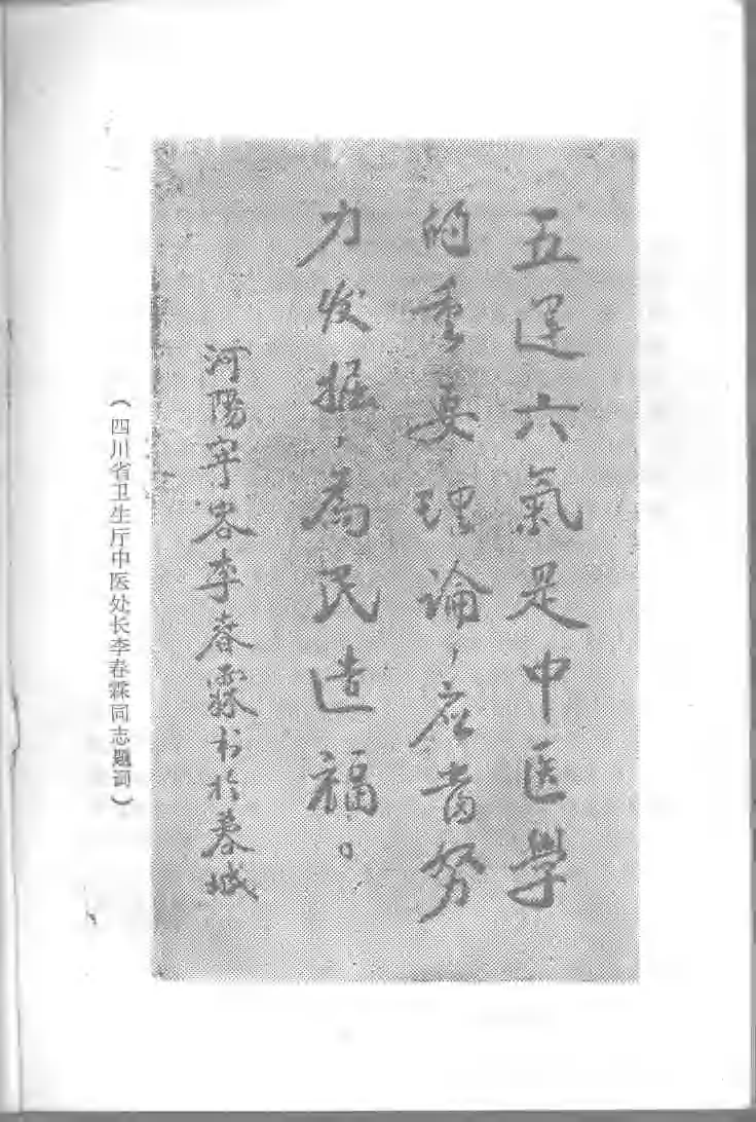 五運六氣是中医學
的重要理論，应當努
力发掘，為民造福。
河陽宇客李春霖书於蓉城
（四川省卫生厅中医处长李春霖同志题词）